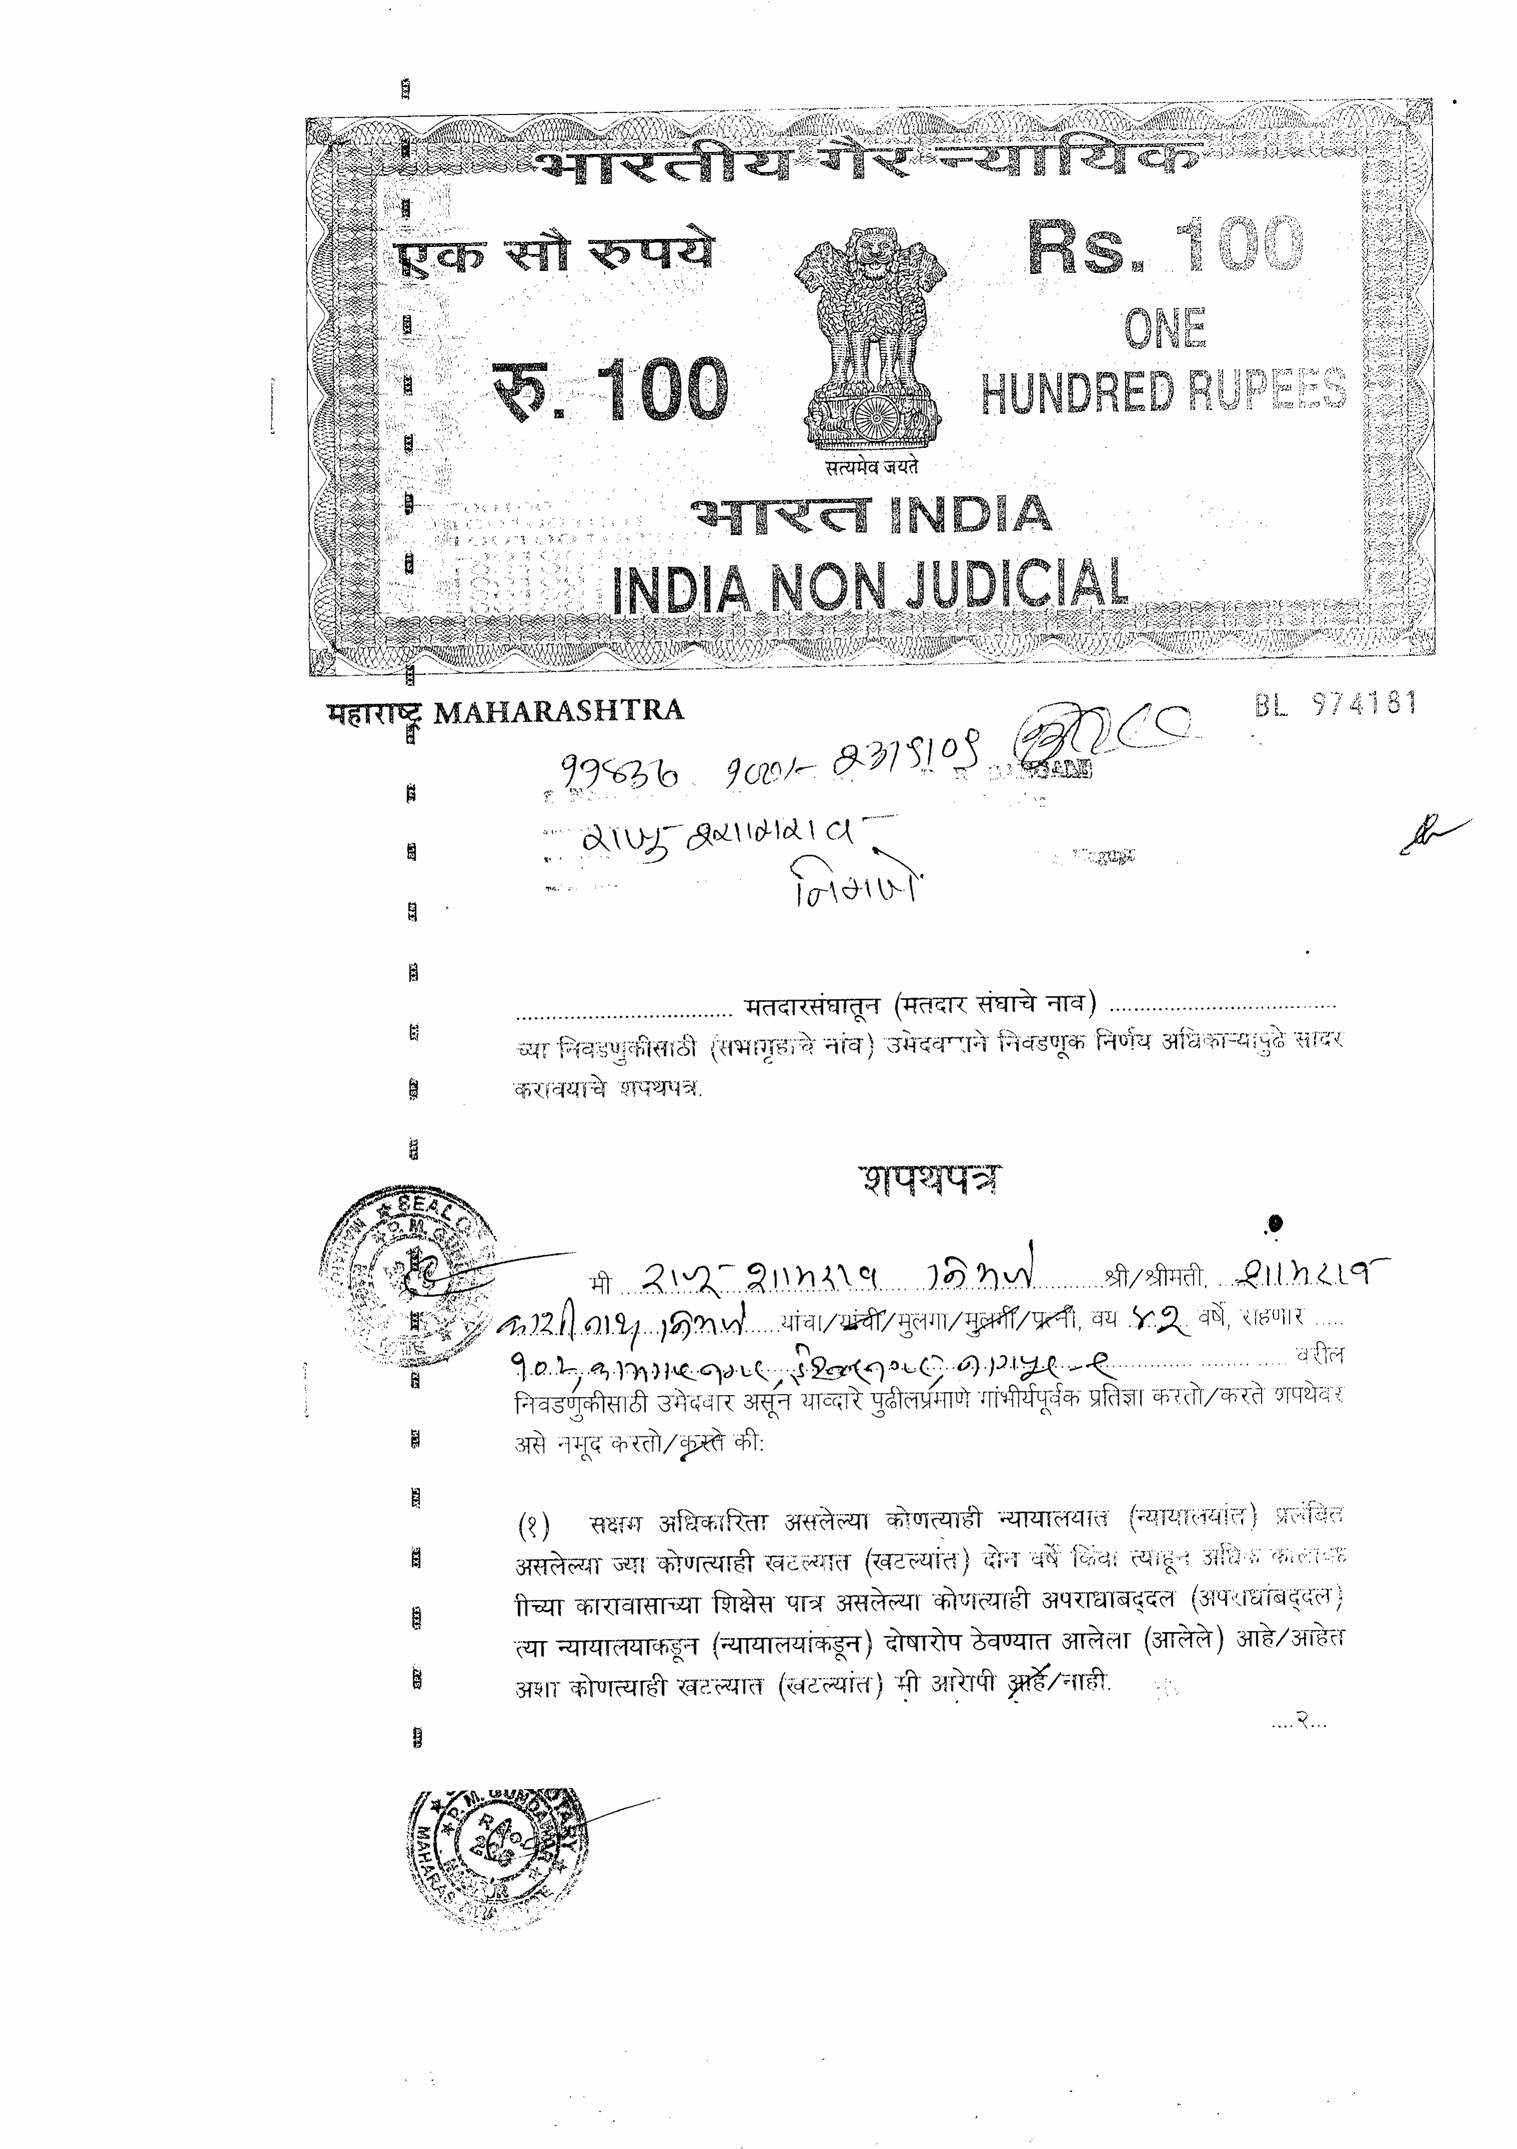 भारतीय गैर न्यायिक
एक सौ रुपये
Rs. 100
रु. 100
ONE
HUNDRED RUPEES
सत्यमेव जयते
भारत INDIA
INDIA NON JUDICIAL
महाराष्ट्र MAHARASHTRA
BL 974181
राजु शामराव
निमजे
................................ मतदारसंघातून (मतदार संघाचे नाव) ................................
च्या निवडणुकीसाठी (सभागृहाचे नांव) उमेदवाराने निवडणूक निर्णय अधिकाऱ्यापुढे सादर
करावयाचे शपथपत्र.
शपथपत्र
मी राजू शामराव निमजे श्री/श्रीमती. शामराव
काशीनाथ निमजे यांचा/यांची/मुलगा/मुलगी/पत्नी, वय ४२ वर्षे, राहणार .....
नागपूर वरील
निवडणुकीसाठी उमेदवार असून याव्दारे पुढीलप्रमाणे गांभीर्यपूर्वक प्रतिज्ञा करतो/करते शपथेवर
असे नमूद करतो/करते की:
(१) सक्षम अधिकारिता असलेल्या कोणत्याही न्यायालयात (न्यायालयांत) प्रलंबित
असलेल्या ज्या कोणत्याही खटल्यात (खटल्यांत) दोन वर्षे किंवा त्याहून अधिक कालावध
ीच्या कारावासाच्या शिक्षेस पात्र असलेल्या कोणत्याही अपराधाबद्दल (अपराधांबद्दल)
त्या न्यायालयाकडून (न्यायालयांकडून) दोषारोप ठेवण्यात आलेला (आलेले) आहे/आहेत
अशा कोणत्याही खटल्यात (खटल्यांत) मी आरोपी आहे/नाही.
....२...
SEAL
P. M.
P. M. GUNDAWAR
NOTARY
MAHARAS